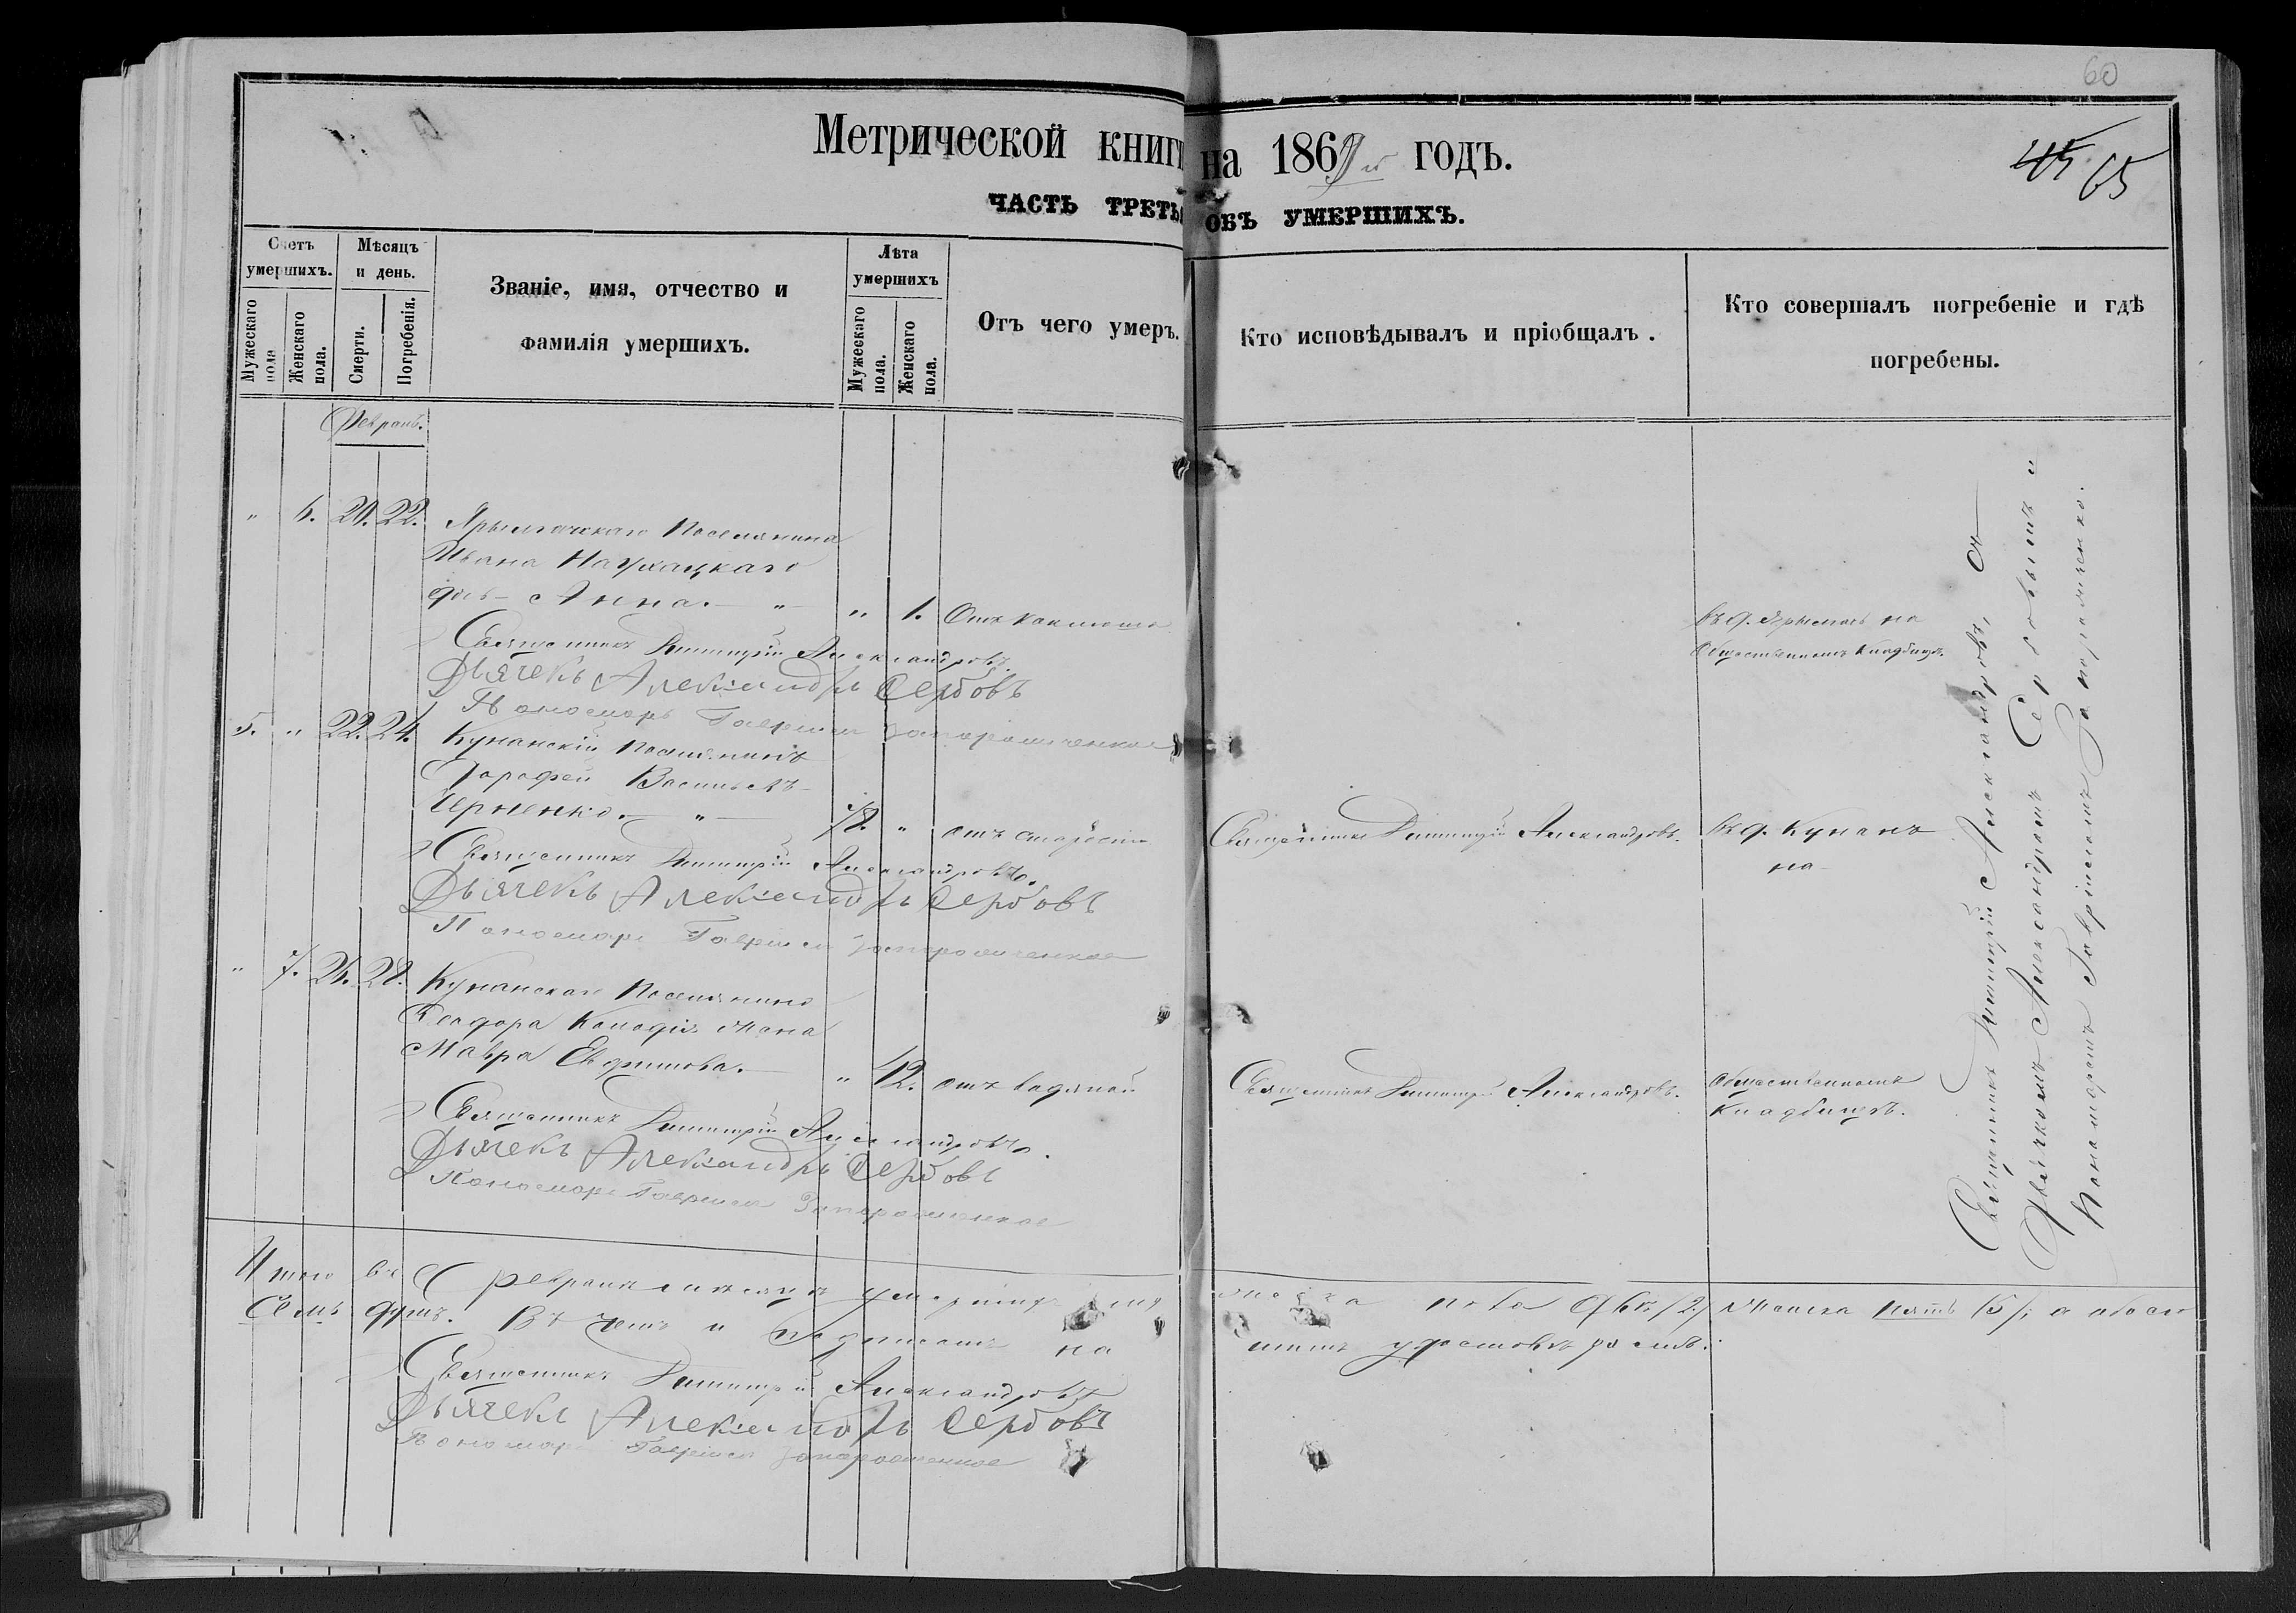 60
Метрической книги на 1869й годъ.
45 65
ЧАСТЬ ТРЕТЬЯ ОБЪ УМЕРШИХЪ.
Счетъ умершихъ.
Мѣсяцъ и день.
Званіе, имя, отчество и фамилія умершихъ.
Лѣта умершихъ
Отъ чего умеръ.
Кто исповѣдывалъ и пріобщалъ.
Кто совершалъ погребеніе и гдѣ погребены.
Мужескаго пола
Женскаго пола.
Смерти.
Погребенія.
Мужескаго пола.
Женскаго пола.
Февраль.
" 6. 20. 22. Ярылгачскаго Поселянина
Ивана
дочь Анна. " " 1. Отъ
въ д. Ярылгачь на
Общественномъ Кладбищѣ.
Священникъ Димитрій Александровъ.
Дьячекъ Александръ Сербовъ
Пономарь Гавріилъ
5. " 22. 24. Кунанскій Поселянинъ
Дорофей Васильевъ
Черненко. " 78. " отъ старости
Священникъ Димитрій Александровъ.
въ д. Кунанъ
на
Священникъ Димитрій Александровъ.
Дьячекъ Александръ Сербовъ
Пономарь Гавріилъ
" 7. 26. 28. Кунанскаго Поселянина
Феодора жена
Мавра Евфимова. " 42. отъ водяной
Священникъ Димитрій Александровъ.
Общественномъ
Кладбищѣ.
Священникъ Димитрій Александровъ.
Дьячекъ Александръ Сербовъ
Пономарь Гавріилъ
Священникъ Димитрій Александровъ, съ
Дьячкомъ Александромъ Сербовымъ и
Пономаремъ Гавріиломъ
Итого въ Февралѣ мѣсяцѣ умершихъ пола два /2/ женска пять /5/; а обоего
Семь душъ. Въ чемъ и подписомъ на удостовѣряемъ:
Священникъ Димитрій Александровъ
Дьячекъ Александръ Сербовъ
Пономарь Гавріилъ